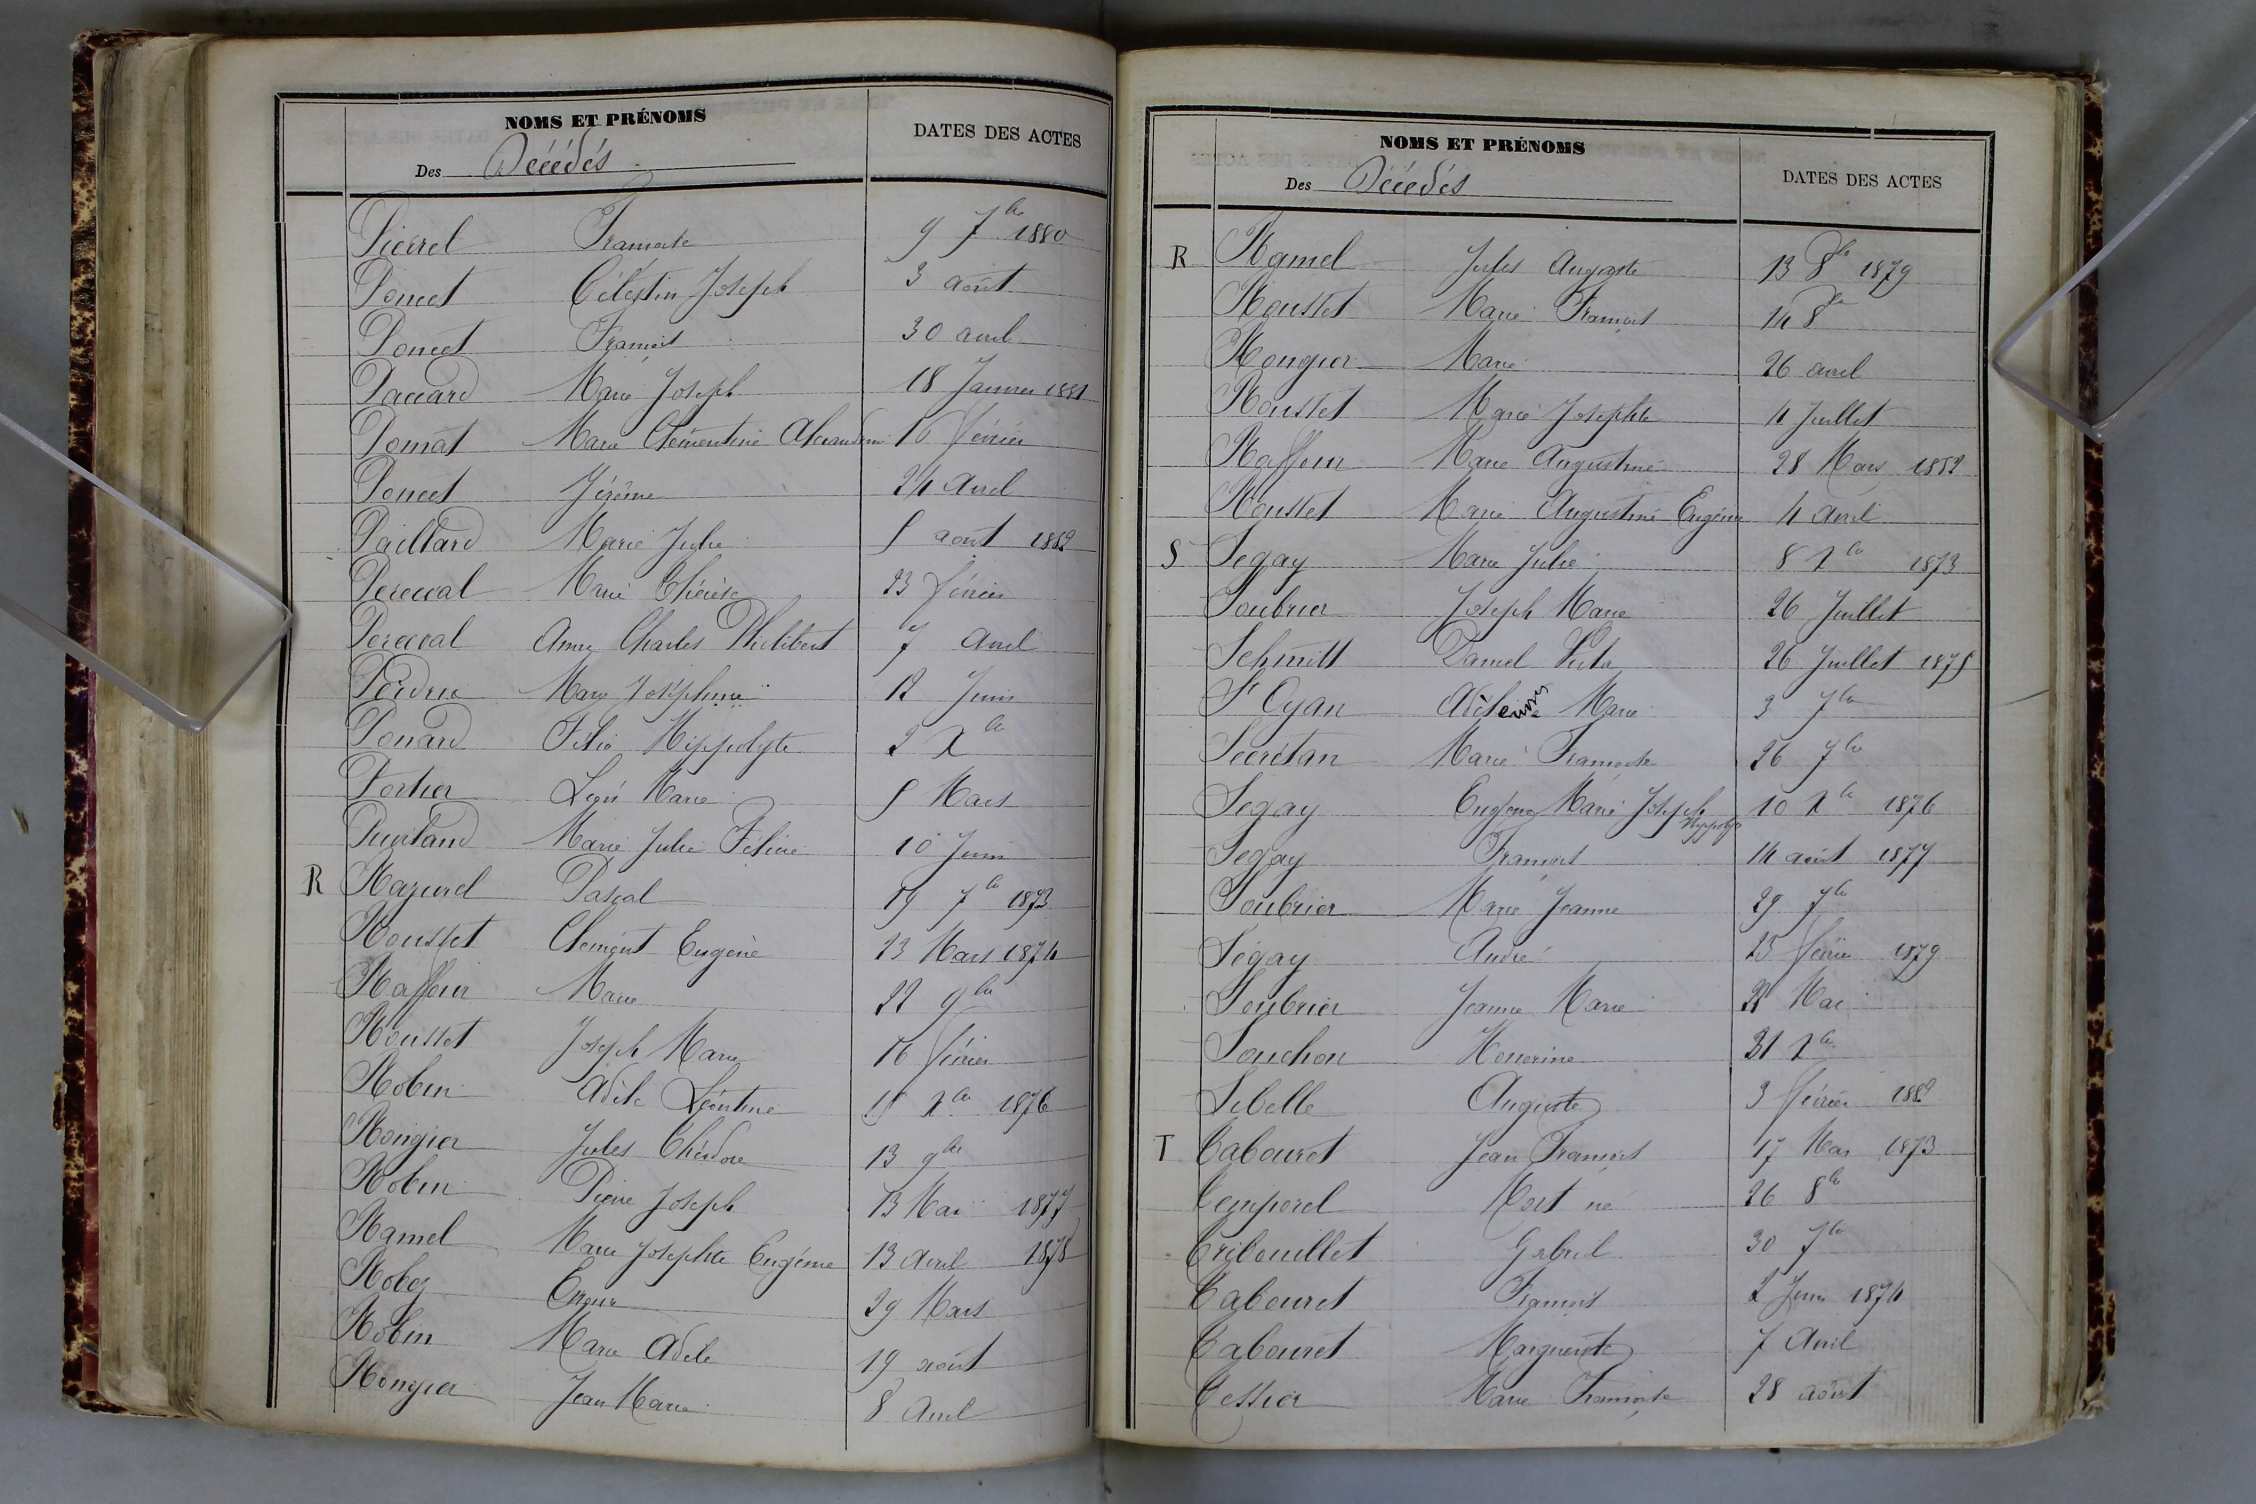 NOMS ET PRÉNOMS
Des Décédés
DATES DES ACTES
Pierrel Francoise 9 7bre 1880
Poncet Célestin Joseph 3 août
Poncet François 30 avril
Paccard Marie Joseph 18 Janvier 1881
Pomat Marie Clémentine Alexandrine 16 février
Poncet Jérôme 24 Avril
Paillard Marie Julie 5 août 1882
Perceval Marie Thérèse 23 février
Perceval Anne Charles Philibert 7 Avril
Perdrix Marie Joséphine 12 Juin
Ponard Félix Hippolyte 2 Xbre
Portier Léon Marie 5 Mars
Marie Julie Féline 10 Juin
R Mazurel Pascal 19 7bre 1873
Rousset Clément Eugène 23 Mars 1874
Raffour Marie 22 9bre
Rousset Joseph Marie 16 février
Robin Adèle Léontine 15 Xbre 1876
Rougier Jules Théodore 13 9bre
Robin Pierre Joseph 13 Mai 1877
Ramel Marie Josephte Eugénie 13 Avril 1878
Robez 29 Mars
Robin Marie Adèle 19 août
Rougier Jean Marie 8 Avril
NOMS ET PRÉNOMS
Des Décédés
DATES DES ACTES
R Ramel Jules Auguste 13 8bre 1879
Rousset Marie François 14 8bre
Rougier Marie 26 avril
Rousset Marie Josephte 4 Juillet
Raffour Marie Augustine 28 Mars 1882
Rousset Marie Augustine Eugénie 4 Avril
S Segay Marie Julie 8 Xbre 1873
Soubrier Joseph Marie 26 Juillet
Schmitt Daniel 26 Juillet 1875
St Oyan Marie 3 7bre
Secrétan Marie Francoise 26 7bre
Segay Eugène Marie Joseph Hippolyte 10 Xbre 1876
Segay François 14 août 1877
Soubrier Marie Jeanne 29 7bre
Ségay André 25 février 1879
Soubrier Jeanne Marie 28 Mai
Souchon Honorine 31 Xbre
Sibelle Auguste 3 février 1882
T Tabouret Jean François 17 Mai 1873
Temporel Mort né 26 8bre
Tribouillet Gabriel 30 7bre
Tabouret François 2 Juin 1874
Tabouret Marguerite 7 Avril
Tessier Marie Françoise 28 août